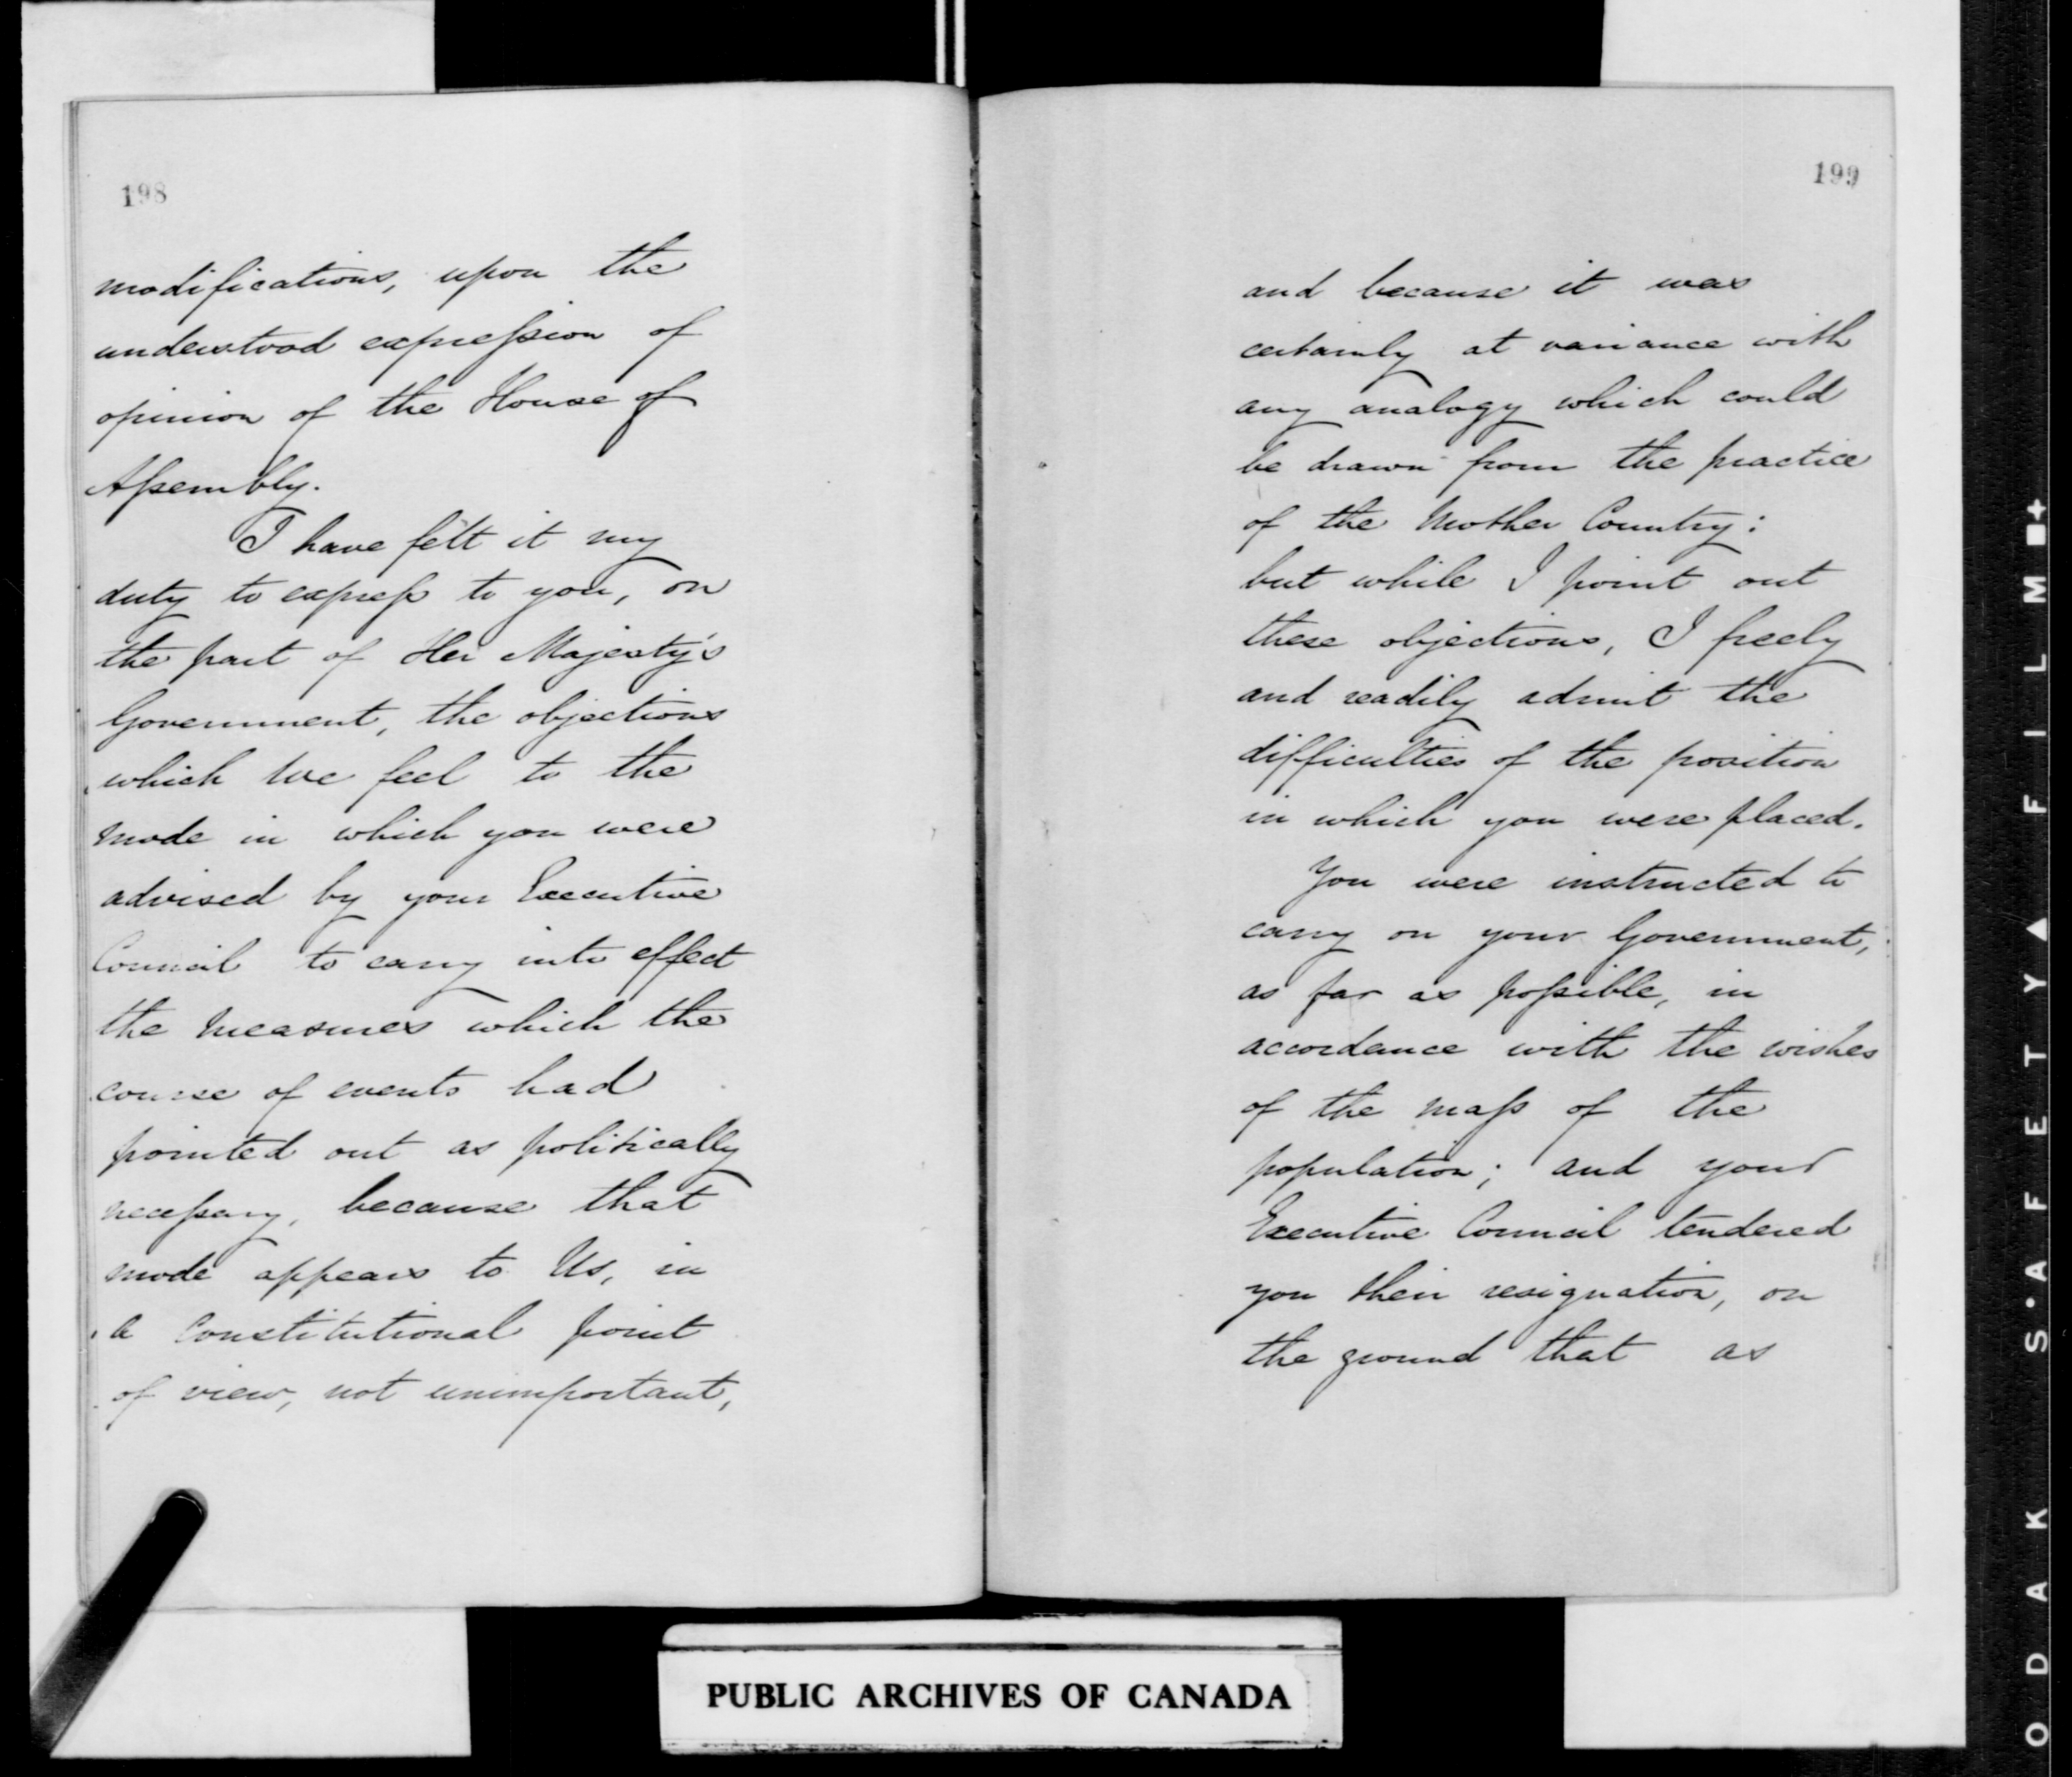 198
modifications, upon the
understood expression of
opinion of the House of
Assembly.
I have felt it my
duty to express to you, on
the part of Her Majesty's
Government, the objections
which We feel to the
mode in which you were
advised by your Executive
Council to carry into effect
the measures which the
course of events had
pointed out as politically
necessary, because that
mode appears to Us, in
a Constitutional point
of view, not unimportant,
199
and because it was
certainly at variance with
any analogy which could
be drawn from the practice
of the Mother Country:
but while I point out
these objections, I freely
and readily admit the
difficulties of the position
in which you were placed.
You were instructed to
carry on your Government,
as far as possible, in
accordance with the wishes
of the mass of the
population; and your
Executive Council tendered
you their resignation, on
the ground that as
PUBLIC ARCHIVES OF CANADA
ODAK S·AFETY▲FILM■+